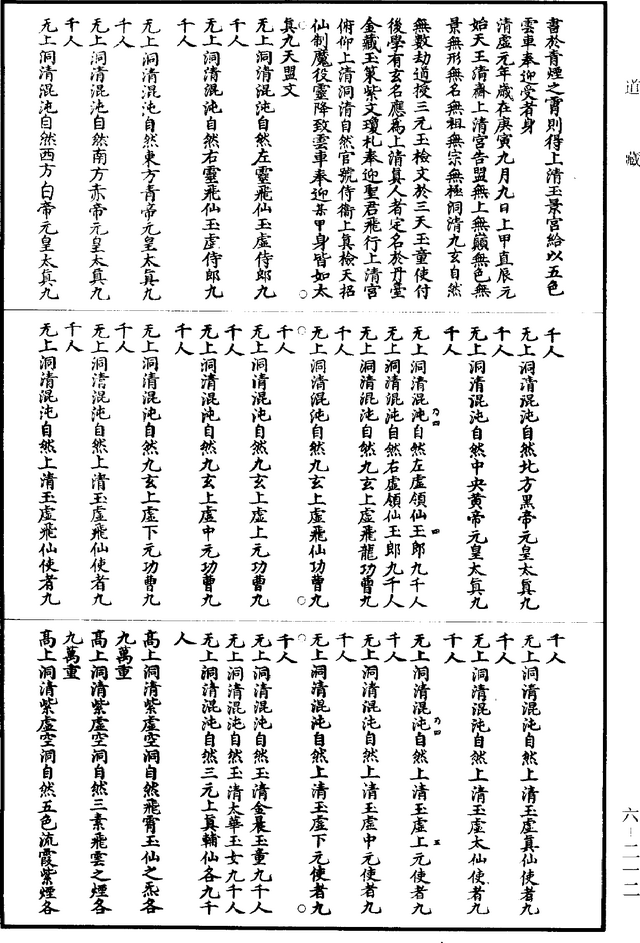 道藏
書於青煙之霄則得上清玉景宮給以五色
雲車奉迎受者身
清虛元年歲在庚寅九月九日上甲直辰元
始天王清齋上清宮告盟無上無巔無色無
景無形無名無祖無宗無極洞清九玄自然
無數劫道授三元玉檢文於三天玉童使付
後學有玄名應為上清真人者定名於丹臺
金藏玉策紫文瓊札奉迎聖君飛行上清宮
俯仰上清洞清自然官號侍衛上真檢天招
仙制魔役靈降致雲車奉迎某甲身皆如太
真九天盟文
无上洞清混沌自然左靈飛仙玉虛侍郎九
千人
无上洞清混沌自然右靈飛仙玉虛侍郎九
千人
无上洞清混沌自然東方青帝元皇太真九
千人
无上洞清混沌自然南方赤帝元皇太真九
千人
无上洞清混沌自然西方白帝元皇太真九
千人
无上洞清混沌自然北方黑帝元皇太真九
千人
无上洞清混沌自然中央黃帝元皇太真九
千人
无上洞清混沌自然左虛領仙玉郎九千人
无上洞清混沌自然右虛領仙玉郎九千人
无上洞清混沌自然九玄上虛飛龍功曹九
千人
无上洞清混沌自然九玄上虛飛仙功曹九
千人
无上洞清混沌自然九玄上虛上元功曹九
千人
无上洞清混沌自然九玄上虛中元功曹九
千人
无上洞清混沌自然九玄上虛下元功曹九
千人
无上洞清混沌自然上清玉虛飛仙使者九
千人
无上洞清混沌自然上清玉虛飛仙使者九
千人
无上洞清混沌自然上清玉虛真仙使者九
千人
无上洞清混沌自然上清玉虛太仙使者九
千人
无上洞清混沌自然上清玉虛上元使者九
千人
无上洞清混沌自然上清玉虛中元使者九
千人
无上洞清混沌自然上清玉虛下元使者九
千人
无上洞清混沌自然玉清金晨玉童九千人
无上洞清混沌自然玉清太華玉女九千人
无上洞清混沌自然三元上真輔仙各九千
人
高上洞清紫虛空洞自然飛霄玉仙之炁各
九萬重
高上洞清紫虛空洞自然三素飛雲之煙各
九萬重
高上洞清紫虛空洞自然五色流霞紫煙各
六－二一二